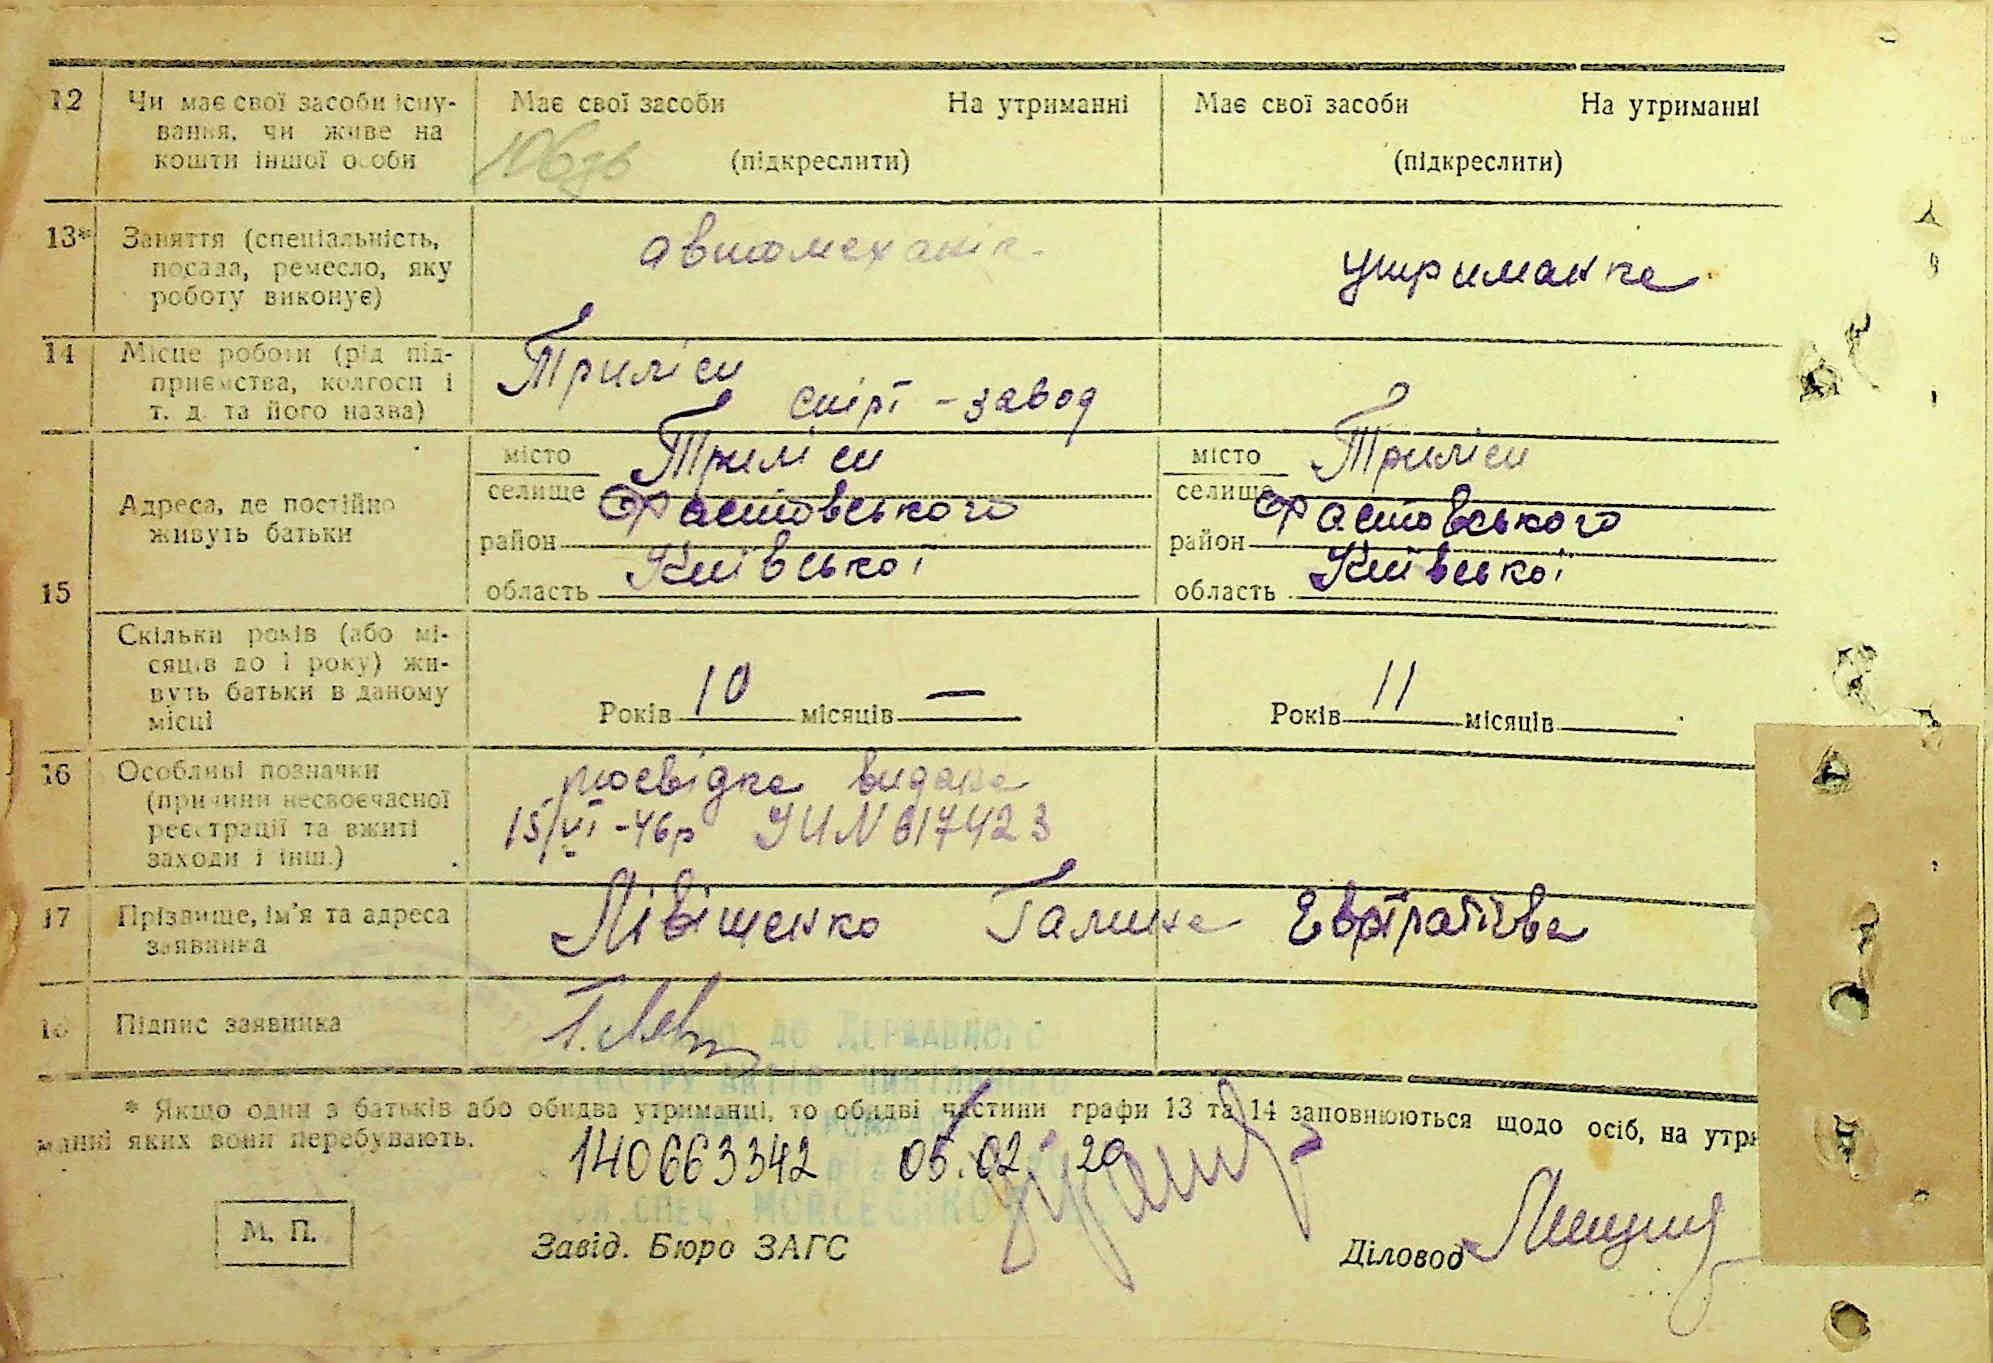 12 Чи має свої засоби існу- Має свої засоби На утриманні Має свої засоби На утриманні
вання, чи живе на
кошти іншої особи (підкреслити) (підкреслити)
13* Заняття (спеціальність, автомеханік утриманка
посада, ремесло, яку
роботу виконує)
14 Місце роботи (рід під- Триліси
приємства, колгосп і спірт-завод
т. д. та його назва)
15 Адреса, де постійно живуть батьки
місто Триліси місто Триліси
селище селище
район Фастовського район Фастовського
область Київської область Київської
Скільки років (або мі-
сяців до 1 року) жи-
вуть батьки в даному
місці
Років 10 місяців — Років 11 місяців
16 Особливі позначки посвідка видана
(причини несвоєчасної 15/VI-46р УИ N 617423
реєстрації та вжиті
заходи і інш.)
17 Прізвище, ім'я та адреса Лівіщенко Галина Евстратієва
заявника
18 Підпис заявника
ДО ДЕРЖАВНОГО
* Якщо один з батьків або обидва утриманці, то обидві частини графи 13 та 14 заповнюються щодо осіб, на утри-
манні яких вони перебувають.
140663342 05.02 20
М. П.
Завід. Бюро ЗАГС
Діловод